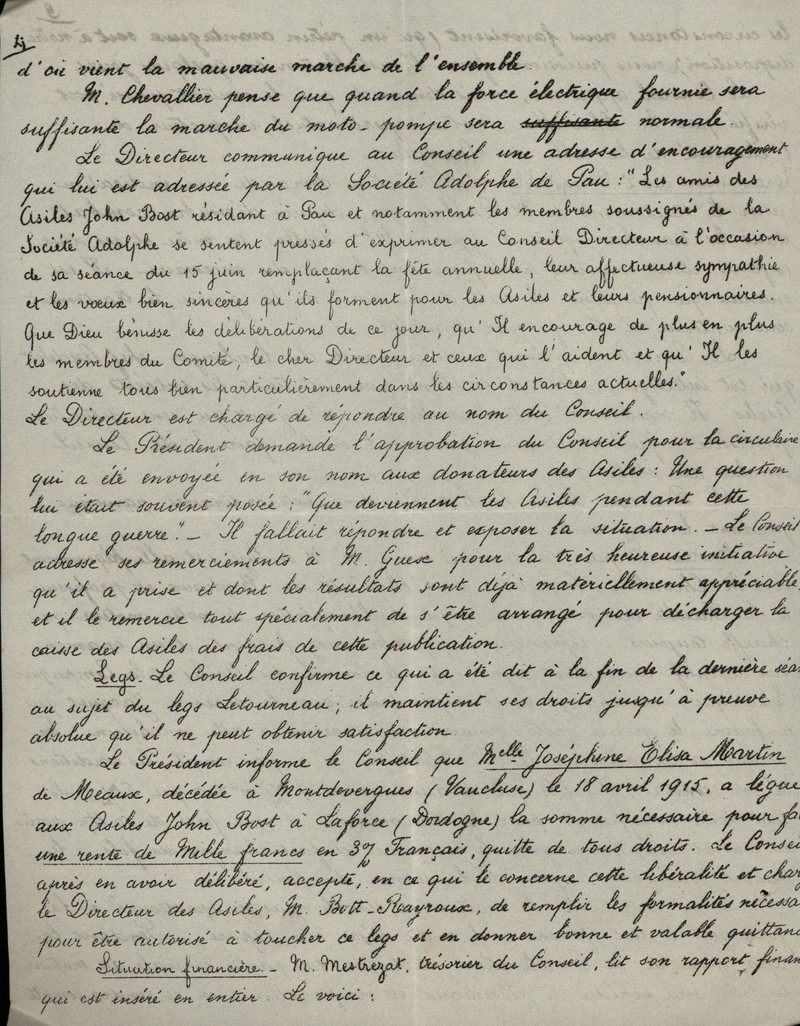 d'où vient la mauvaise marche de l'ensemble
M. Chevallier pense que quand la force électrique fournie sera
suffisante la marche du moto-pompe sera suffisante normale.
Le Directeur communique au Conseil une adresse d'encouragement
qui lui est adressée par la Société Adolphe de Pau : "Les amis des
Asiles John Bost résidant à Pau et notamment les membres soussignés de la
Société Adolphe se sentent pressés d'exprimer au Conseil Directeur à l'occasion
de sa séance du 15 juin remplaçant la fête annuelle, leur affectueuse sympathie
et les vœux bien sincères qu'ils forment pour les Asiles et leurs pensionnaires.
Que Dieu bénisse les délibérations de ce jour, qu'Il encourage de plus en plus
les membres du Comité, le cher Directeur et ceux qui l'aident et qu'Il les
soutienne tous bien particulièrement dans les circonstances actuelles."
Le Directeur est chargé de répondre au nom du Conseil.
Le Président demande l'approbation du Conseil pour la circulaire
qui a été envoyée en son nom aux donateurs des Asiles : Une question
lui était souvent posée : "Que deviennent les Asiles pendant cette
longue guerre". - Il fallait répondre et exposer la situation. - Le Conseil
adresse ses remerciements à M. Guex pour la très heureuse initiative
qu'il a prise et dont les résultats sont déjà matériellement appréciable
et il le remercie tout spécialement de s'être arrangé pour décharger la
caisse des Asiles des frais de cette publication.
Legs. Le Conseil confirme ce qui a été dit à la fin de la dernière séa
au sujet du legs Letourneau ; il maintient ses droits jusqu'à preuve
absolue qu'il ne peut obtenir satisfaction
Le Président informe le Conseil que Melle Joséphine Elisa Martin
de Meaux, décédée à Montdevergues (Vaucluse) le 18 avril 1915, a légué
aux Asiles John Bost à Laforce (Dordogne) la somme nécessaire pour fa
une rente de Mille francs en 3% Français, quitte de tous droits. Le Consei
après en avoir délibéré, accepte, en ce qui le concerne cette libéralité et char
le Directeur des Asiles, M. Bott-Rayroux, de remplir les formalités nécessa
pour être autorisé à toucher ce legs et en donner bonne et valable quittan
Situation financière. - M. Mestrezat, trésorier du Conseil, lit son rapport finan
qui est inséré en entier. Le voici :